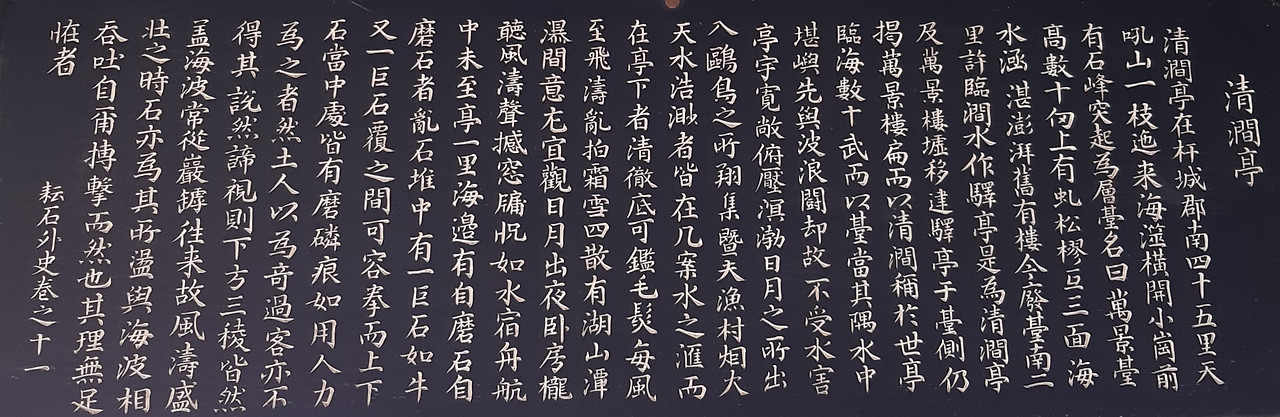 清澗亭
清澗亭在杆城郡南四十五里天
吼山一枝迤来海澨橫開小崗前
有石峰突起為層臺名曰萬景臺
高數十仞上有虬松樛亙三面海
水涵湛澎湃舊有樓今廢臺南二
里許臨澗水作驛亭是為清澗亭
及萬景樓墟移建驛亭于臺側仍
揭萬景樓扁而以清澗稱於世亭
臨海數十武而以臺當其隅水中
堪嶼先與波浪鬪却故不受水害
亭宇寬敞俯壓溟渤日月之所出
入鷗鳧之所翔集暨夫漁村烟火
天水浩渺者皆在几案水之滙而
在亭下者清徹底可鑑毛髮每風
至飛濤亂拍霜雪四散有湖山潭
瀑間意尤宜觀日月出夜卧房櫳
聽風濤聲撼窓牖怳如水宿舟航
中未至亭一里海邉有自磨石自
磨石者亂石堆中有一巨石如牛
又一巨石覆之間可容拳而上下
石當中處皆有磨磷痕如用人力
為之者然土人以為奇過客亦不
得其説然諦視則下方三稜皆然
盖海波常從巖罅往来故風濤盛
壯之時石亦為其所盪與海波相
吞吐自甭搏擊而然也其理無足
恠者
耘石外史巻之十一